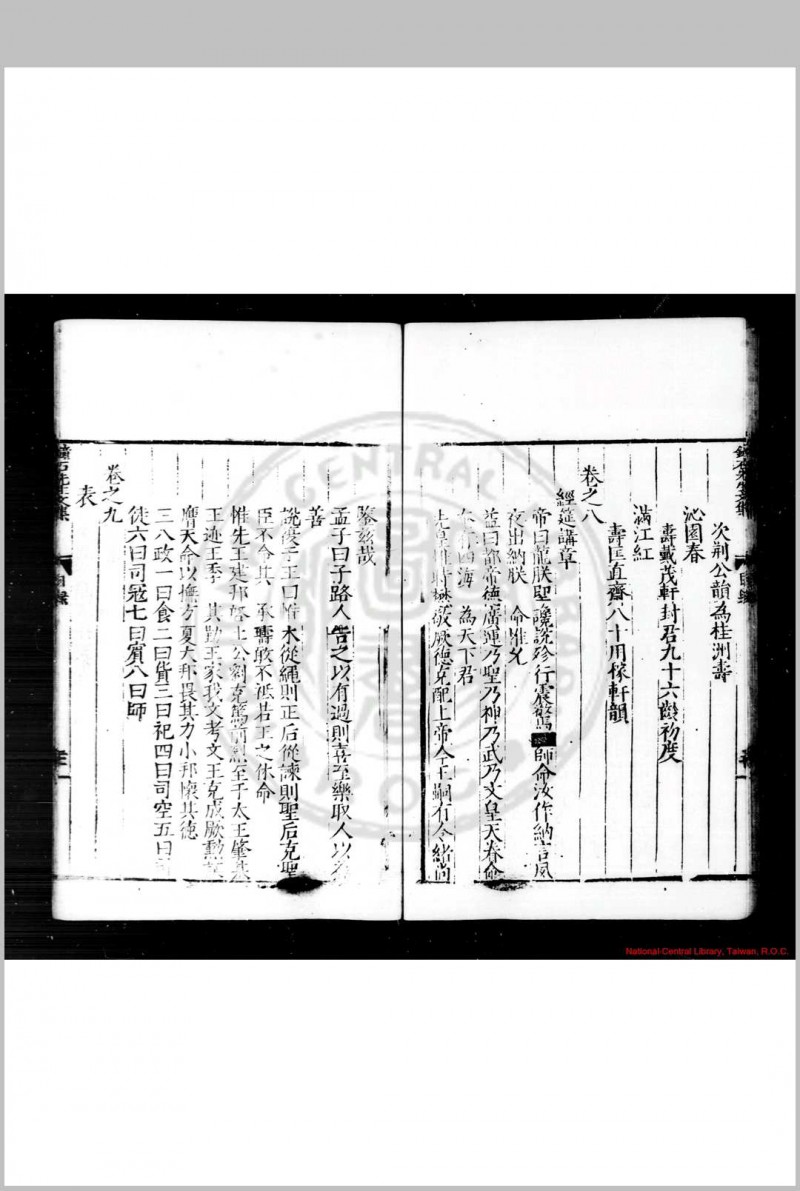 次荆公韻為桂洲壽
沁園春
壽戴茂軒封君九十六齡初度
滿江紅
壽匡直齋八十用稼軒韻
卷之八
經筵講章
帝曰龍朕堲讒說殄行震驚 師命汝作納言夙
夜出納朕 命惟允
益曰都帝德廣運乃聖乃神乃武乃文皇天眷命
奄有四海 為天下君
先王惟時懋敬厥德克配上帝今王嗣有令緒尚
監茲哉
孟子曰子路人告之以有過則喜至樂取人以為
善
說復于王曰惟木從繩則正后從諫則聖后克聖
臣不命其 承疇敢不祗若王之休命
惟先王建邦啓土公劉克篤前烈至于太王肇基
王迹王季 其勤王家我文考文王克成厥勳誕
膺天命以撫方夏大邦畏其力小邦懷其德
三八政一曰食二曰貨三曰祀四曰司空五曰司
徒六曰司寇七曰賓八曰師
卷之九
表
鐘石先生文集
目錄
National Central Library, Taiwan, R.O.C.